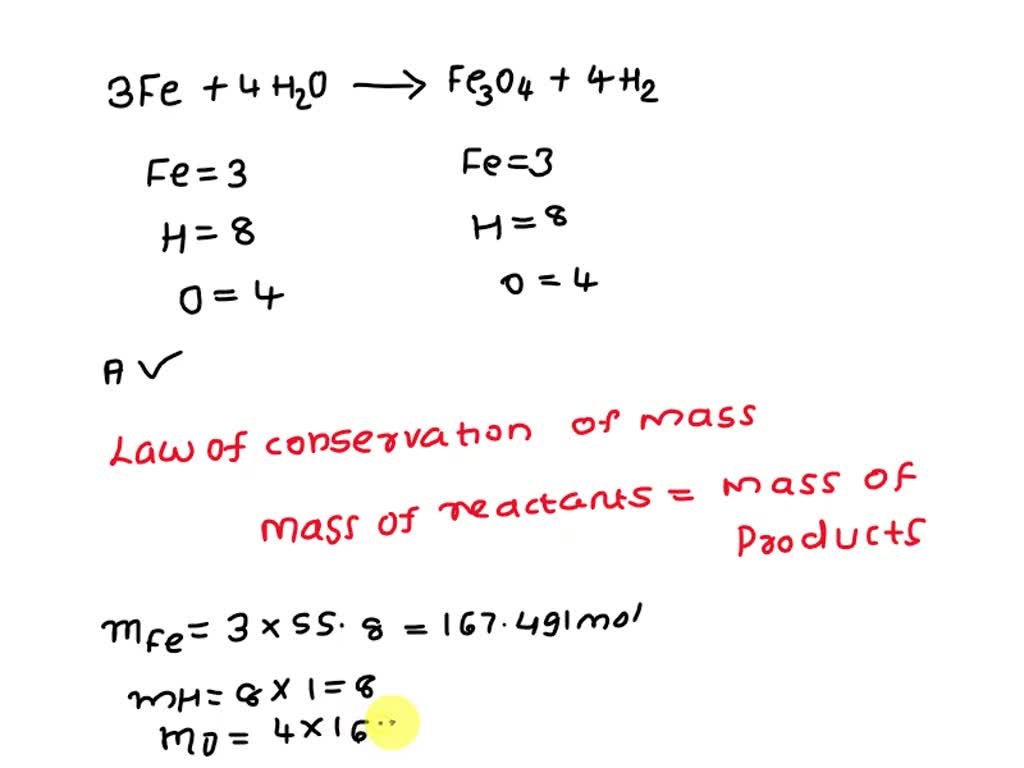 3Fe + 4H₂O ⟶ Fe₃O₄ + 4H₂
Fe = 3 Fe = 3
H = 8 H = 8
O = 4 O = 4
A ✓
Law of conservation of mass
mass of reactants = mass of
Products
mFe = 3 × 55.8 = 167.4g/mol
mH = 8 × 1 = 8
mO = 4 × 16